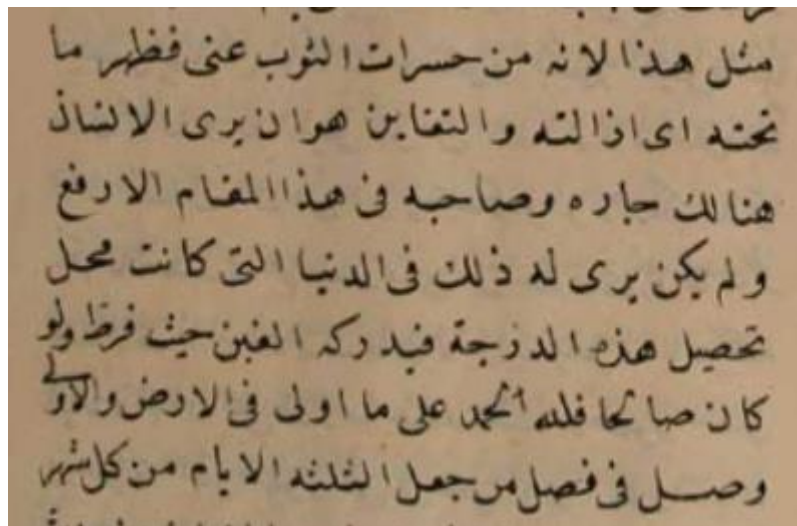 مثل هذا لانه من حسرات الثوب عنى فظهر ما
تحته اى ازالته والتغابن هوان يرى الانسان
هنالك جاره وصاحبه فى هذا المقام الارفع
ولم يكن يرى له ذلك فى الدنيا التى كانت محل
تحصيل هذه الدرجة فيدركه الغبن حيث فرط ولو
كان صالحا فلله الحمد على ما اولى فى الارض والاولى
وصل فى فصل من جعل الثلثه الايام من كل شهر